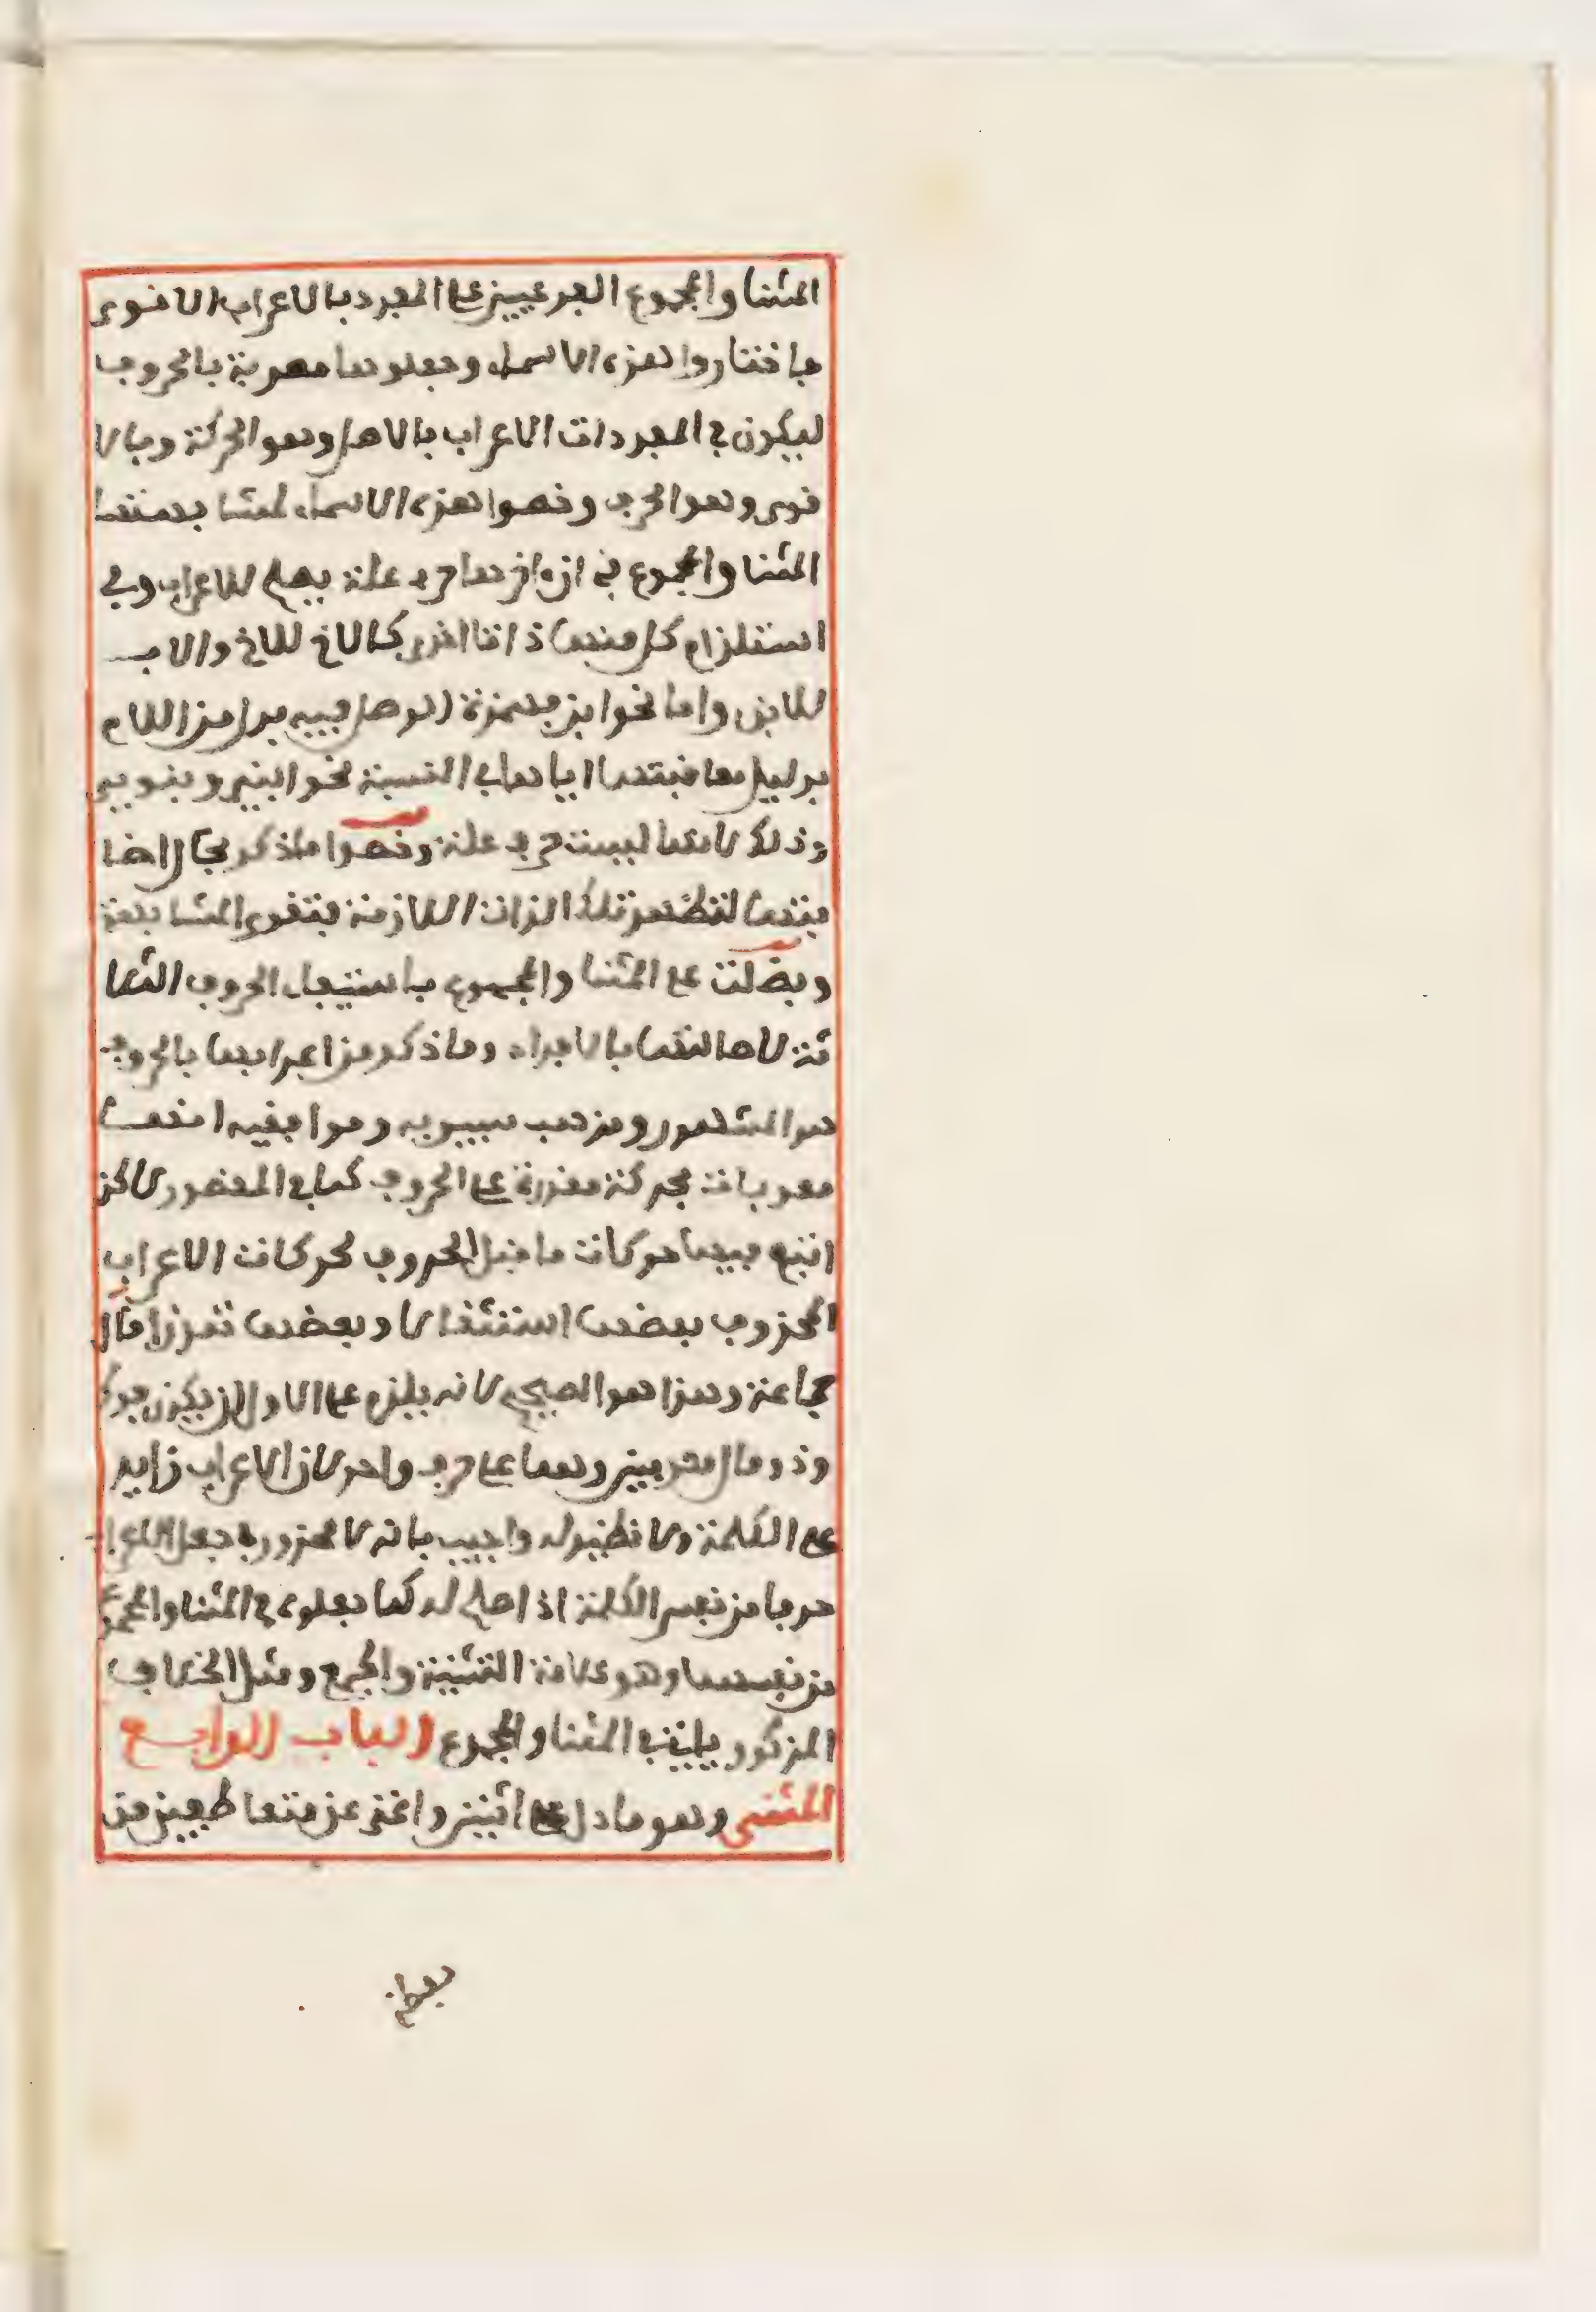 المثنا والمجموع الفرعيين على المفرد بالاعراب الاقوى
فاختاروا هذه الاسماء وجعلوها معربة بالحروف
ليكون في المفردات الاعراب بالاصل وهو الحركة وبالا
قوى وهو الحرف وخصوا هذه الاسماء لمشابهتها
المثنا والمجموع في ان اخرها حرف علة يصلح للاعراب وفي
استلزام كل منهما ذاتا اخرى كالاخ للاخ والاب
للابن واما نحو ابن فهمزة الوصل فيه بدل من اللام
بدليل معاقبتها اياها في النسبة نحو ابني وبنوي
وذلك لانها ليست حرف علة وخصوا ما ذكر بحال اضا
فتها لتظهر تلك الذات اللازمة فتقوى المشابهة
وفضلت على المثنا والمجموع باستيفاء الحروف الثلا
ثة لاصالتها بالافراد وما ذكر من اعرابها بالحروف
هو المشهور ومذهب سيبويه وموافقيه انها
معربات بحركة مقدرة على الحروف كما في المقصور لاكن
اتبع فيها حركات ما قبل الحروف لحركات الاعراب
المحذوف بعضها استثقالا وبعضها تعذرا قال
جماعة وهذا هو الصحيح لانه يلزم على الاول ان يكون فوك
وذو مال معربين وهما على حرف واحد لان الاعراب زايد
على الكلمة ولا نظير له واجيب بانه لا محذور في جعل الاعراب
حرفا من نفس الكلمة اذا صلح له كما جعلوه في المثنا والمجموع
من نفسهما وهو علامة التثنية والجمع ومثل الخلاف
المذكور ياتي في المثنا والمجموع الباب الرابع
المثنى وهو ما دل على اثنين واغنى عن متعاطفين من